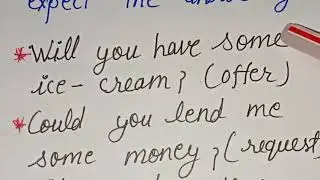 expect the answer
*Will you have some
ice-cream? (offer)
*Could you lend me
some money? (request)